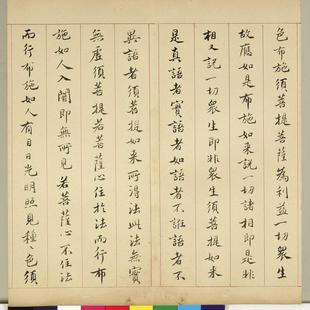 色布施須菩提菩薩為利益一切衆生
故應如是布施如來説一切諸相即是非
相又説一切衆生即非衆生須菩提如來
是真語者實語者如語者不誑語者不
異語者須菩提如來所得法此法無實
無虛須菩提若菩薩心住於法而行布
施如人入闇即無所見若菩薩心不住法
而行布施如人有目日光明照見種〻色須